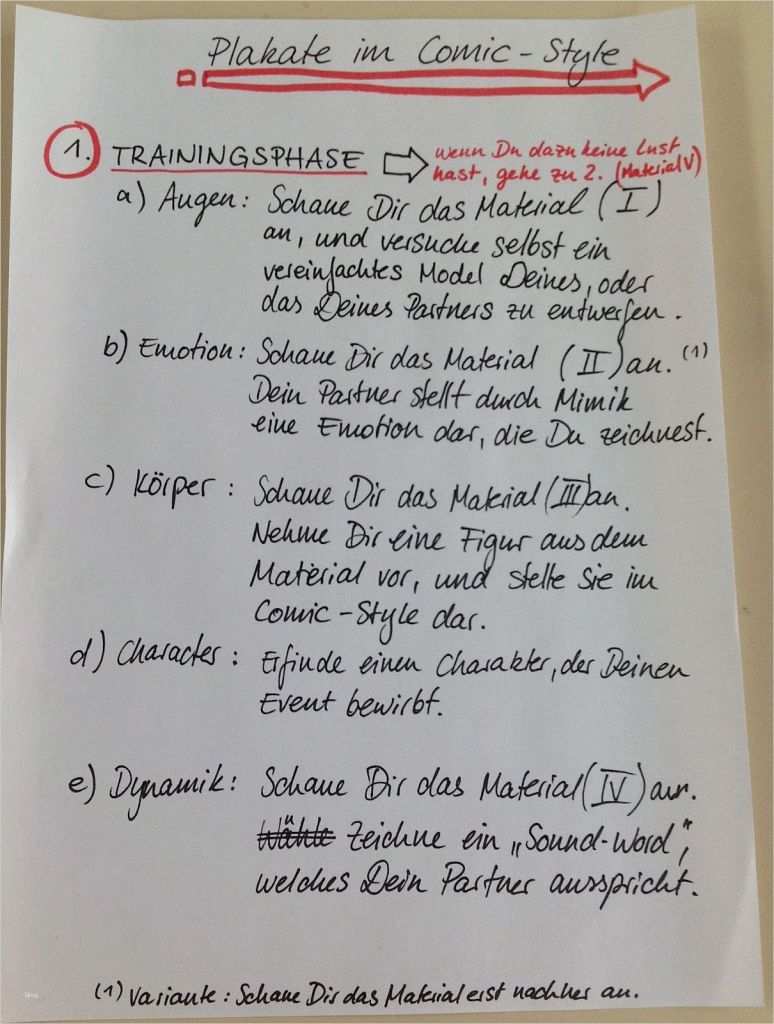 Plakate im Comic-Style
1. TRAININGSPHASE wenn Du dazu keine Lust
hast, gehe zu 2. (Material V)
a) Augen: Schaue Dir das Material (I)
an, und versuche selbst ein
vereinfachtes Model Deines, oder
das Deines Partners zu entwerfen.
b) Emotion: Schaue Dir das Material (II) an. (1)
Dein Partner stellt durch Mimik
eine Emotion dar, die Du zeichnest.
c) Körper: Schaue Dir das Material (III) an.
Nehme Dir eine Figur aus dem
Material vor, und stelle sie im
Comic-Style dar.
d) Character: Erfinde einen Charakter, der Deinen
Event bewirbt.
e) Dynamik: Schaue Dir das Material (IV) an.
Wähle Zeichne ein „Sound-Word",
welches Dein Partner ausspricht.
(1) Variante: Schaue Dir das Material erst nachher an.